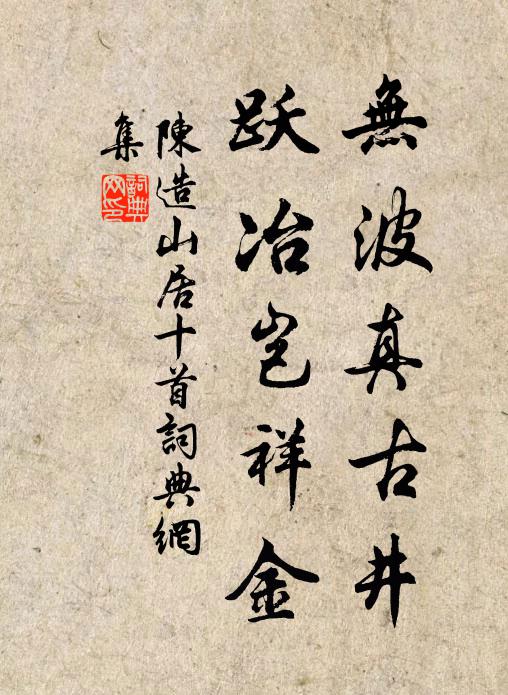 無波真古井
跃冶岂祥金
陳造山居十首詞典網
集
詞典
网印